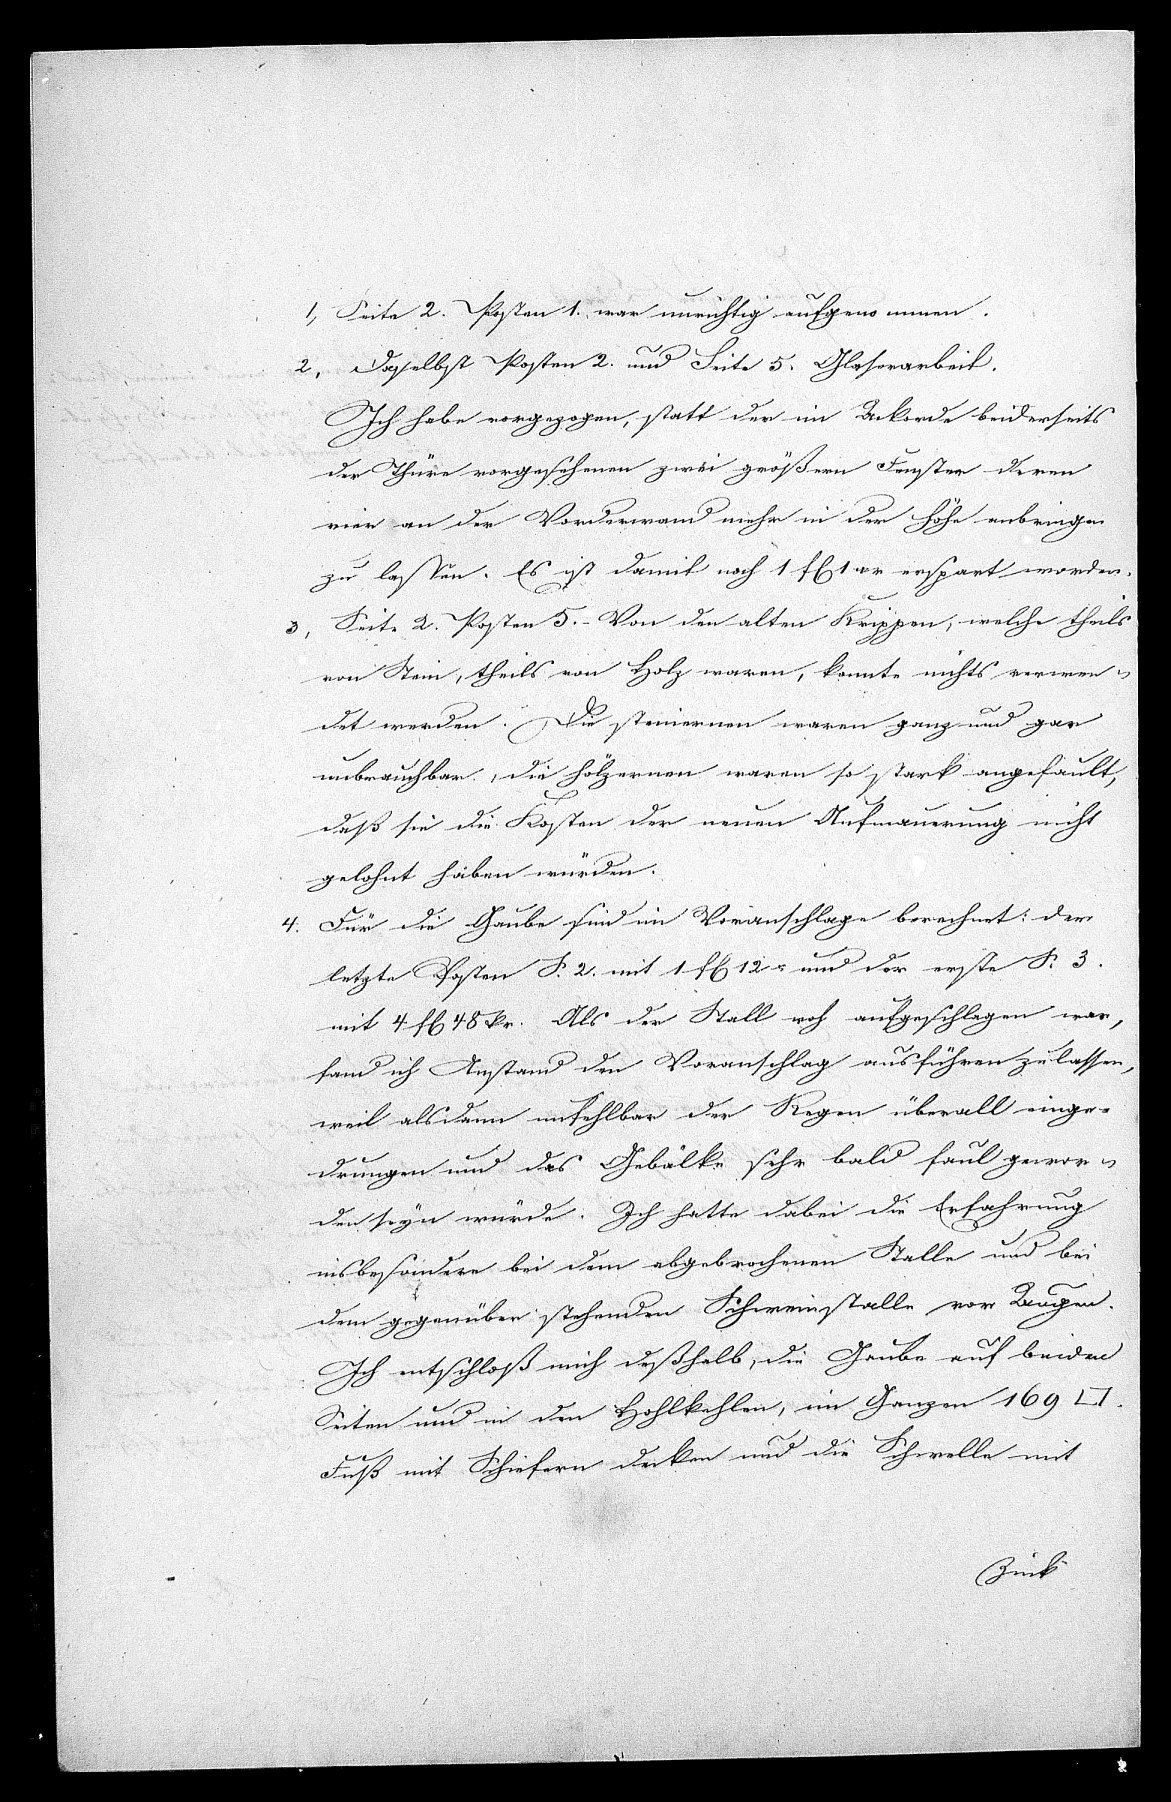 1, Seite 2. Posten 1. war unrichtig aufgenommen.
2, Daselbst Posten 2. und Seite 5. Glaserarbeit.
Ich habe vorgezogen, statt der im Akkorde beiderseits
der Thüre vorgesehenen zwei größern Fenster deren
vier an der Vorderwand mehr in der Höhe anbringen
zu lassen. Es ist damit noch 1 fl 1 xr erspart worden.
3, Seite 2. Posten 5. - Von den alten Krippen, welche theils
von Stein, theils von Holz waren, konnte nichts verwen=
det werden. Die steinernen waren ganz und gar
unbrauchbar, die hölzernen waren so stark angefault,
daß sie die Kosten der neuen Aufmauerung nicht
gelohnt haben würden.
4. Für die Gaube sind im Voranschlage berechnet: der
letzte Posten S. 2. mit 1 fl 12 x und der erste S. 3.
mit 4 fl 48 kr. Als der Stall roh aufgeschlagen war,
fand ich Anstand den Voranschlag ausführen zu lassen,
weil alsdann unfehlbar der Regen überall einge=
drungen und das Gebälke sehr bald faul gewor=
den seyn würde. Ich hatte dabei die Erfahrung
insbesondere bei dem abgebrochenen Stalle und bei
dem gegenüber stehenden Schweinstalle vor Augen.
Ich entschloß mich deßhalb, die Gaube auf beiden
Seiten und in den Hohlkehlen, im Ganzen 169 □
Fuß mit Schiefern decken und die Schwelle mit
Zink